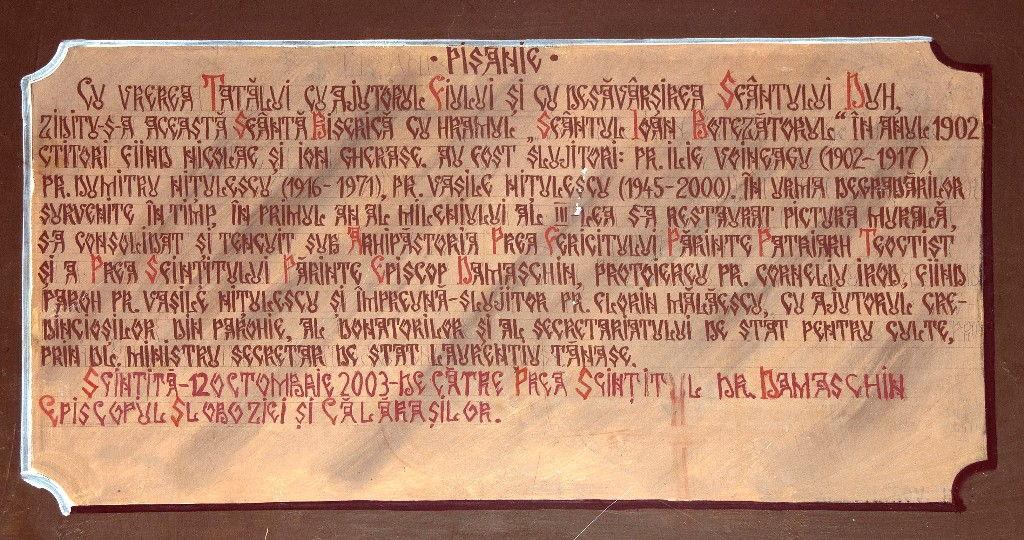 · PISANIE ·
CU VREREA TATĂLUI CU AJUTORUL FIULUI ȘI CU DESĂVÂRȘIREA SFÂNTULUI DUH,
ZIDITU-S-A ACEASTĂ SFÂNTĂ BISERICĂ CU HRAMUL „SFÂNTUL IOAN BOTEZĂTORUL“ ÎN ANUL 1902
CTITORI FIIND NICOLAE ȘI ION GHERASE. AU FOST SLUJITORI: PR. ILIE VOINEAGU (1902-1917)
PR. DUMITRU NIȚULESCU (1916-1971), PR. VASILE NIȚULESCU (1945-2000). ÎN URMA DEGRADĂRILOR
SURVENITE ÎN TIMP, ÎN PRIMUL AN AL MILENIULUI AL III-LEA S-A RESTAURAT PICTURA MURALĂ,
S-A CONSOLIDAT ȘI TENCUIT SUB ARHIPĂSTORIA PREA FERICITULUI PĂRINTE PATRIARH TEOCTIST
ȘI A PREA SFINȚITULUI PĂRINTE EPISCOP DAMASCHIN, PROTOIEREU PR. CORNELIU IROD, FIIND
PAROH PR. VASILE NIȚULESCU ȘI ÎMPREUNĂ-SLUJITOR PR. FLORIN MĂLĂESCU, CU AJUTORUL CRE-
DINCIOȘILOR DIN PAROHIE, AL DONATORILOR ȘI AL SECRETARIATULUI DE STAT PENTRU CULTE,
PRIN DL. MINISTRU SECRETAR DE STAT LAURENȚIU TĂNASE.
SFINȚITĂ-12 OCTOMBRIE 2003-DE CĂTRE PREA SFINȚITUL DR. DAMASCHIN
EPISCOPUL SLOBOZIEI ȘI CĂLĂRAȘILOR.